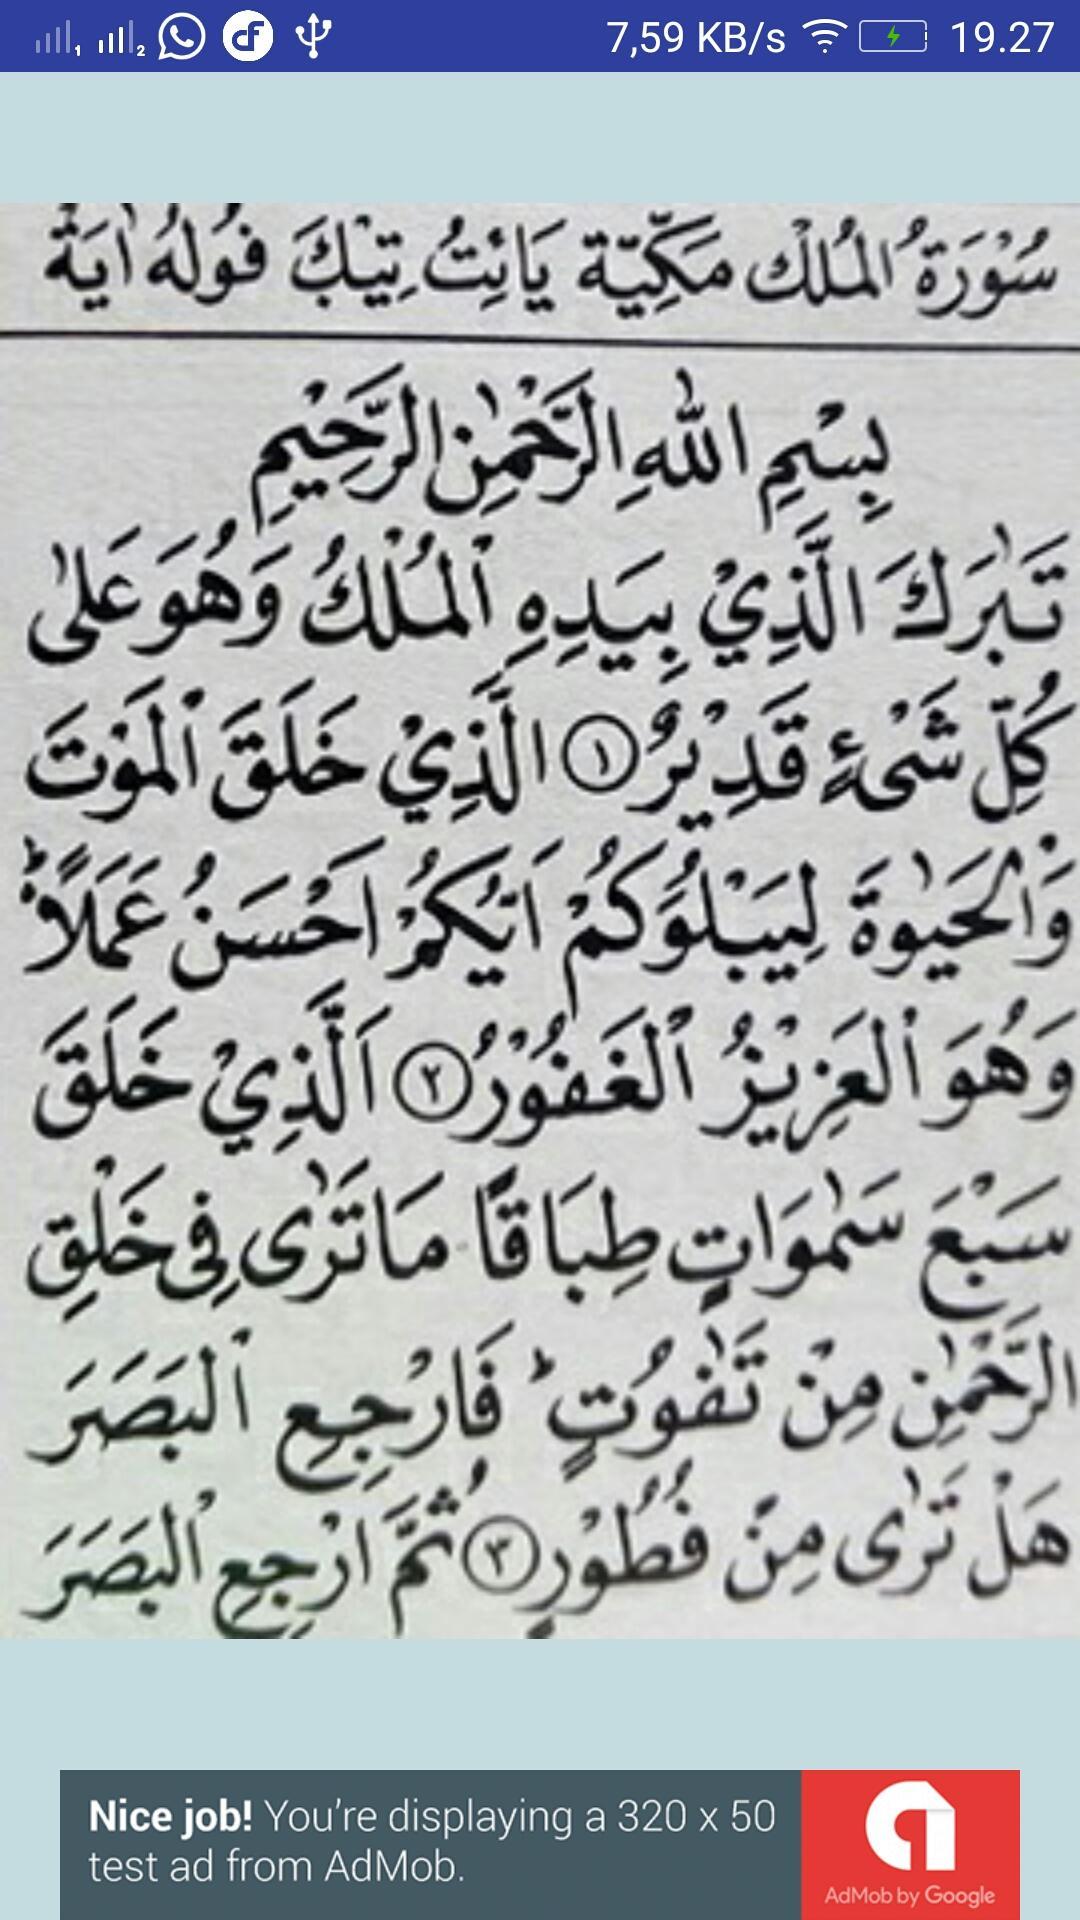 7,59 KB/s 19.27
سُوْرَةُ الْمُلْك مَكِّيَّة يَائِتُ تِيْكَ فُوْلُهُ اٰيَةْ
بِسْمِ اللّٰهِ الرَّحْمٰنِ الرَّحِيْمِ
تَبٰرَكَ الَّذِيْ بِيَدِهِ ٱلْمُلْكُ وَهُوَ عَلٰى
كُلِّ شَىْءٍ قَدِيْرٌ ١ الَّذِيْ خَلَقَ ٱلْمَوْتَ
وَٱلْحَيٰوةَ لِيَبْلُوَكُمْ اَيُّكُمْ اَحْسَنُ عَمَلًاۗ
وَهُوَ ٱلْعَزِيْزُ ٱلْغَفُوْرُ ٢ اَلَّذِيْ خَلَقَ
سَبْعَ سَمٰوَاتٍ طِبَاقًا مَا تَرٰى فِى خَلْقِ
الرَّحْمٰنِ مِنْ تَفٰوُتٍۗ فَارْجِعِ ٱلْبَصَرَ
هَلْ تَرٰى مِنْ فُطُوْرٍ ٣ ثُمَّ ارْجِعِ ٱلْبَصَرَ
Nice job! You're displaying a 320 x 50
test ad from AdMob.
AdMob by Google